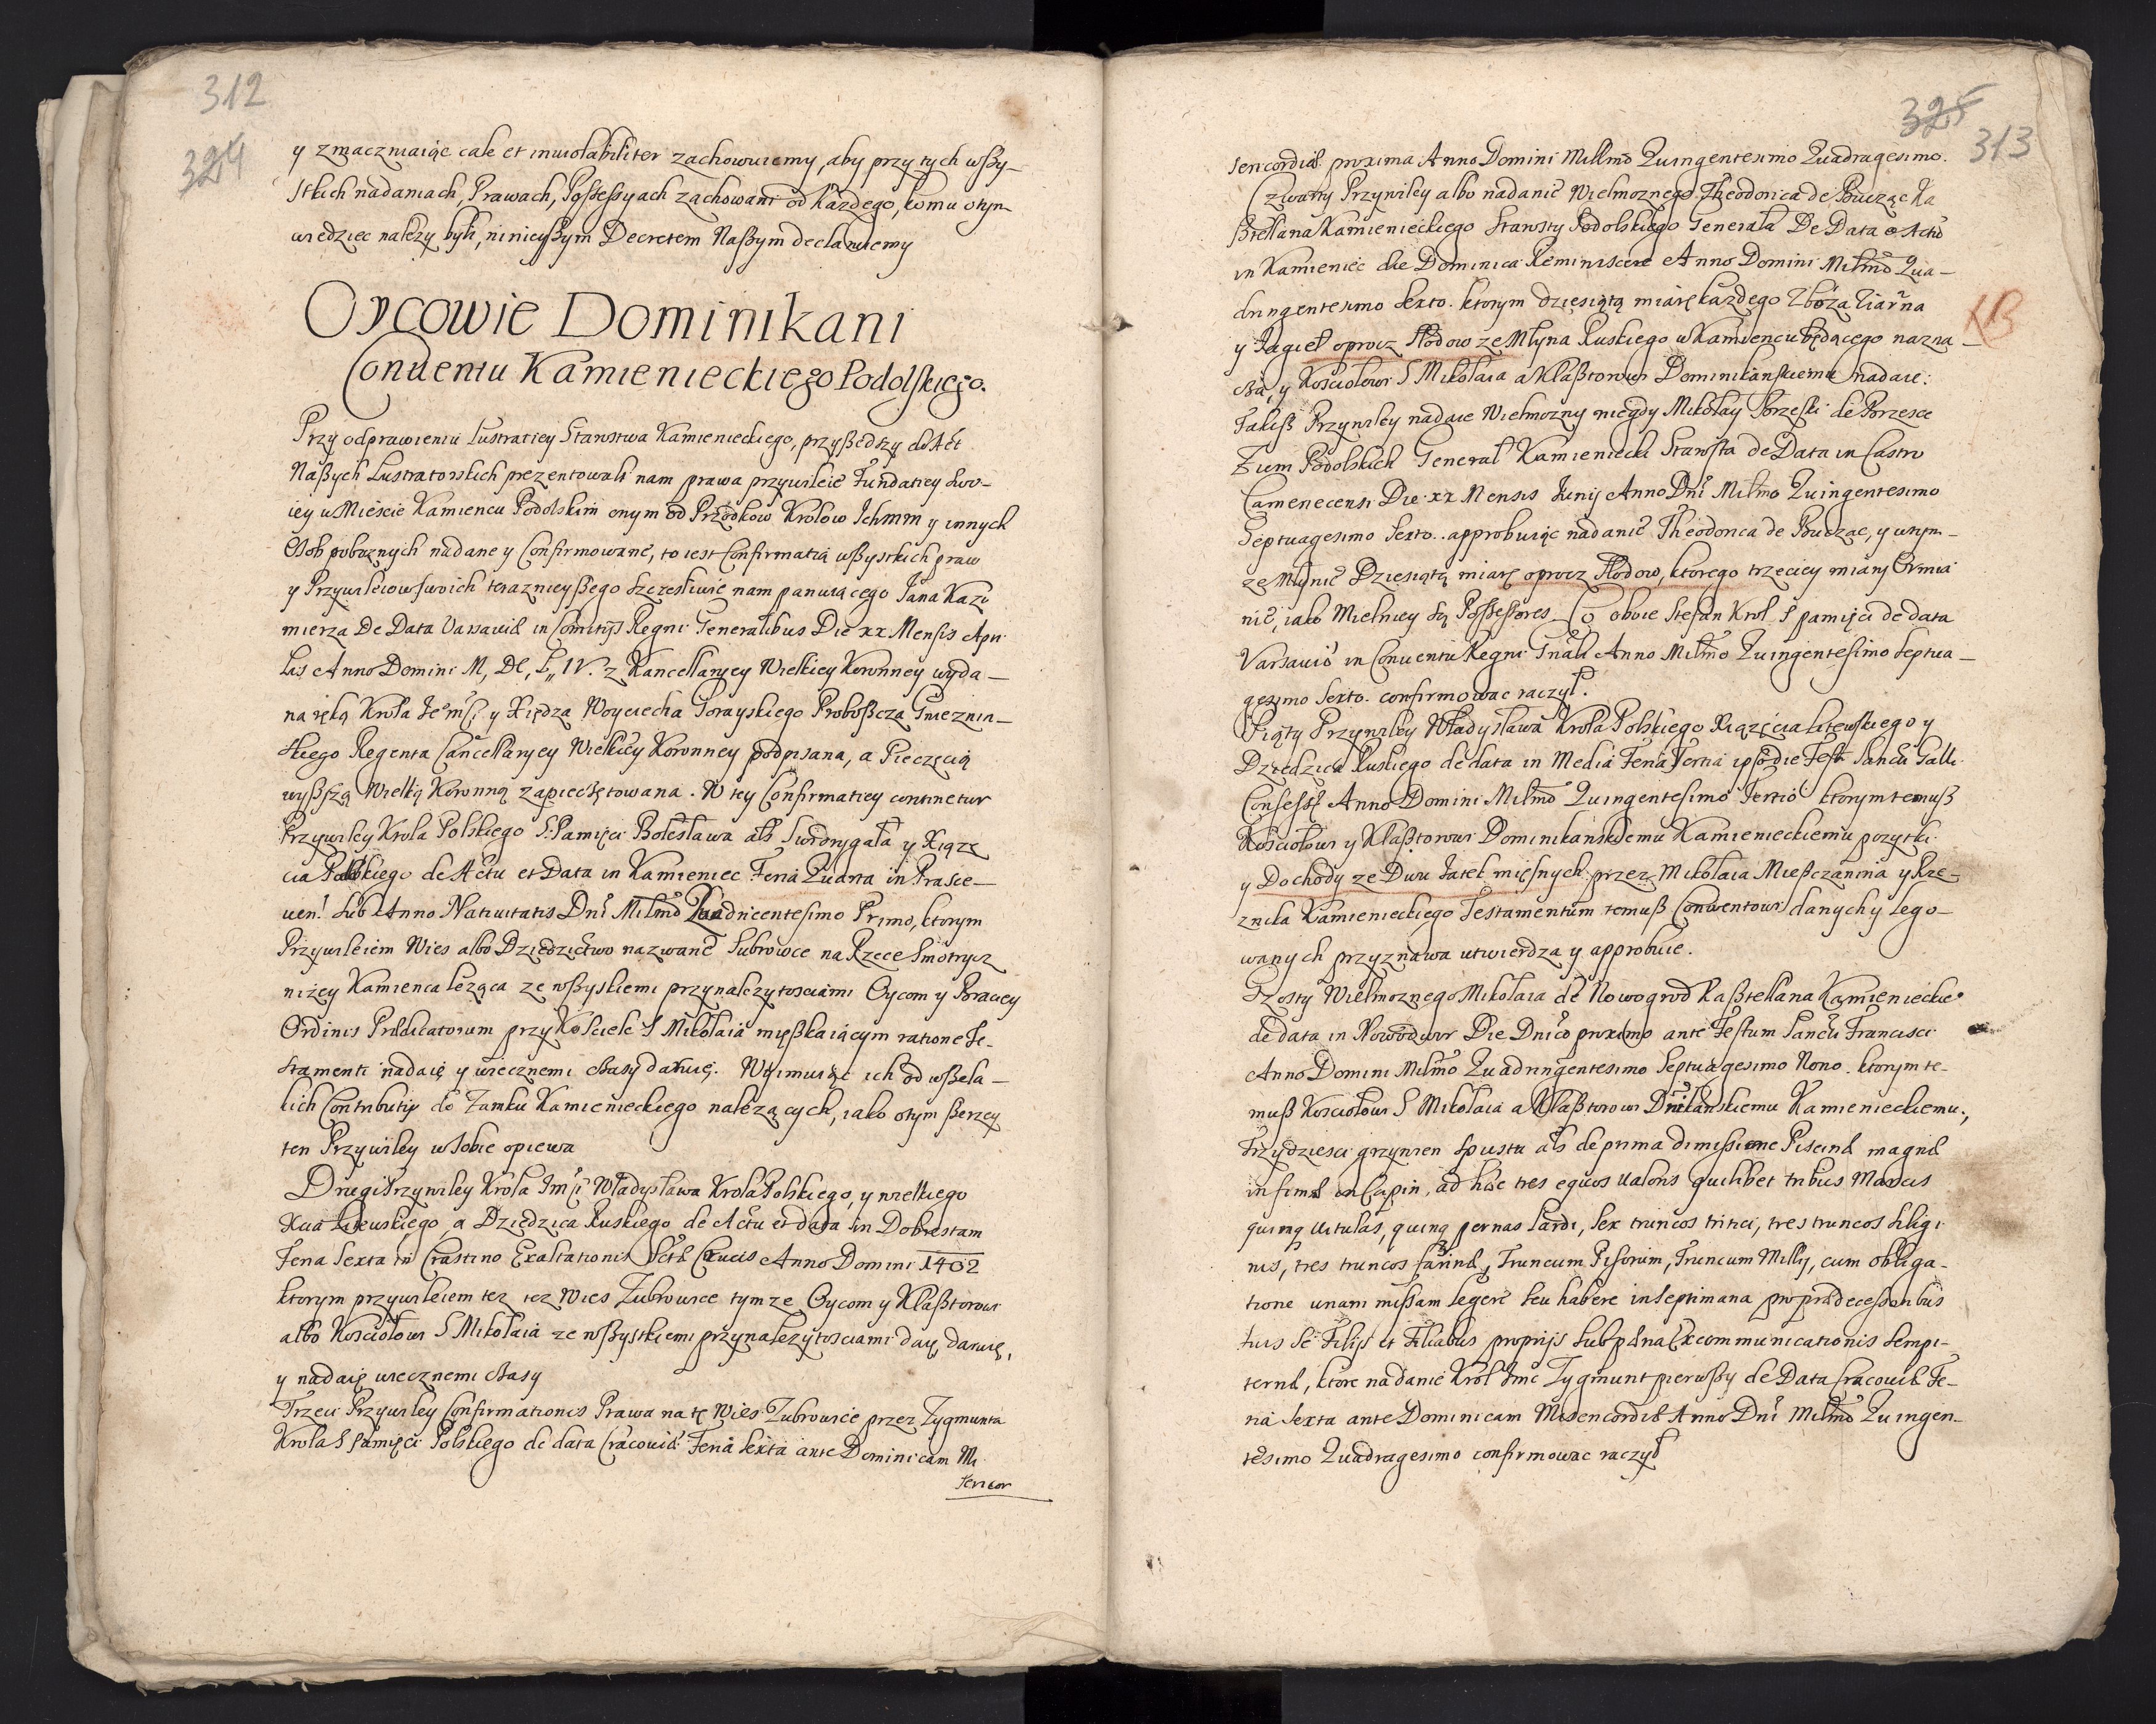 312
324
y zmaczniaiąc cale et inuiolabiliter zachowuiemy, aby przy tych wßy-
stkich nadaniach, Prawach, Possessyach zachowani od każdego, komu otym
wiedziec należy byli, ninieyßym Decretem Naßym declaruiemy
Oycowie Dominikani
Conuentu Kamienieckiego Podolskiego.
Przy odprawieniu Lustratiey Starostwa Kamienieckiego, przyßedszy do Act
Naßych Lustratorskich prezentowali nam prawa przywileie Fundatiey swo-
iey w Mieście Kamiencu Podolskim onym od Przodkow Krolow Ichmm y innych
Osob pobożnych nadane y Confirmowane, to iest Confirmatią wßystkich praw
y Przywileiow swoich teraznieyßego szczesliwie nam panuiącego Jana Kazi
mierza De Data Varsauiæ in Comitijs Regni Generalibus Die xx Mensis Apri
lis Anno Domini M, DC, L, IV. z Kancellaryey Wielkiey Koronney wyda-
na ręką Krola Je°mści y Xiędza Woyciecha Gorayskiego Proboßcza Gnieznin-
skiego Regenta Cancellaryey Wielkiey Koronney podpisana, a Pieczęcią
wyßszą Wielką Koronną zapieczętowana. W tey Confirmatiey continetur
Przywiley Krola Polskiego S. Pamięci Bolesława als Swidrygała y Xiążę
cia Polskiego de Actu et Data in Kamieniec Feria Quarta in Prasce-
uen! sub Anno Natiuitatis Dni Milmo Quadricentesimo Primo, ktorym
Przywileiem Wies albo Dziedzictwo nazwane Zubrowce na Rzece Smotrycz
niżey Kamienca leżąca ze wßystkiemi przynależytościami Oycom y Braciey
Ordinis Prædicatorum przy Kościele S Mikołaia mięßkaiącym ratione Te-
stamenti nadaię y wiecznemi czasy daruię. Wyimuiąc ich od wßela-
kich Contributij do Zamku Kamienieckiego należących, iako otym ßerzey
ten Przywiley w sobie opiewa
Drugi Przywiley Krola Jmści Władysława Krola Polskiego, y wielkiego
Xcia Litewskiego, a Dziedzica Ruskiego de Actu et data in Dobrestam
Feria Sexta in Crastino Exaltationis Sctæ Crucis Anno Domini 1402
ktorym przywileiem też tez Wies Zubrowce tymze Oycom y Klaßtorowi
albo Kościołowi S Mikołaia ze wßystkiemi przynależytościami daię, daruię,
y nadaię wiecznemi czasy
Trzeci Przywiley Confirmationis Prawa na tę Wies Zubrowce przez Zygmunta
Krola S pamięci Polskiego de data Cracouiæ Feria Sexta ante Dominicam Mi
sericor
325
313
sericordiæ proxima Anno Domini Millmo Quingentesimo Quadragesimo.
Czwarty Przywiley albo nadanie Wielmożnego Theodorica de Buczac Ka
ßtellana Kamienieckiego Starosty Podolskiego Generała De Data et Actu
in Kamieniec die Dominica Reminiscere Anno Domini Milmo Qua-
dringentesimo Sexto. ktorym dziesiątą miarę każdego Zboża Ziarna
y Jagieł oprocz Słodow ze Młyna Ruskiego w Kamiencu będącego nazna-
cza, y Kościołowi S Mikołaia a Klaßtorowi Dominikańskiemu nadaie:
Takiß Przywiley nadaie Wielmożny niegdy Mikołay Brzeski de Brzesce
Ziem Podolskich Generał Kamieniecki Starosta de Data in Castro
Camenecensi Die xx Mensis Junij Anno Dni Milmo Quingentesimo
Septuagesimo Sexto. approbuiąc nadanie Theodorica de Buczac, y w tym-
ze Młynie Dziesiątą miarę oprocz Słodow, ktorego trzeciey miary Ormia
nie, iako Mielnicy są Possessores. Co oboie Stefan Krol S pamięci de data
Varsauiæ in Conuentu Regni Gnali Anno Milmo Quingentesimo Septua-
gesimo Sexto. confirmowac raczył.
Piąty Przywiley Władysława Krola Polskiego Xiążęcia Litewskiego y
Dziedzica Ruskiego de data in Media Feria Tertia ipso die Festi Sancti Galli
Confess: Anno Domini Milmo Quingentesimo Tertio ktorym temuß
Kościołowi y Klaßtorowi Dominikańskiemu Kamienieckiemu pożytki
y Dochody ze Dwu Jatek mięsnych przez Mikołaia Mießczanina y Rze-
znika Kamienieckiego Testamentum temuß Conuentowi danych y lego-
wanych przyznawa utwierdza y approbuie.
Szosty Wielmożnego Mikołaia de Nowogrod Kaßtellana Kamienieckie°
de data in Nowodwor Die Dnico proximo ante Festum Sancti Francisci
Anno Domini Milmo Quadringentesimo Septuagesimo Nono. ktorym te-
muß Kościołowi S Mikołaia a Klaßtorowi Dnikańskiemu Kamienieckiemu,
Trzydziesci grzywien spustu als de prima dimissione Piscinæ magnæ
insimul in Capin, ad hæc tres equos valoris quilibet tribus Marcis
quinq vitulas, quinq pernas lardi, sex truncos tritici, tres truncos siligi
nis, tres truncos farinæ, Truncum Pisorum, Truncum Millij, cum obliga-
tione unam missam legere seu habere in septimana pro prædecessoribus
suis se Filijs et Filiabus proprijs sub pæna Excommunicationis sempi-
ternæ, ktore nadanie Krol Jmc Zygmunt pierwßy de Data Cracouiæ Fe-
ria Sexta ante Dominicam Misericordiæ Anno Dni Milmo Quingen-
tesimo Quadragesimo confirmowac raczył